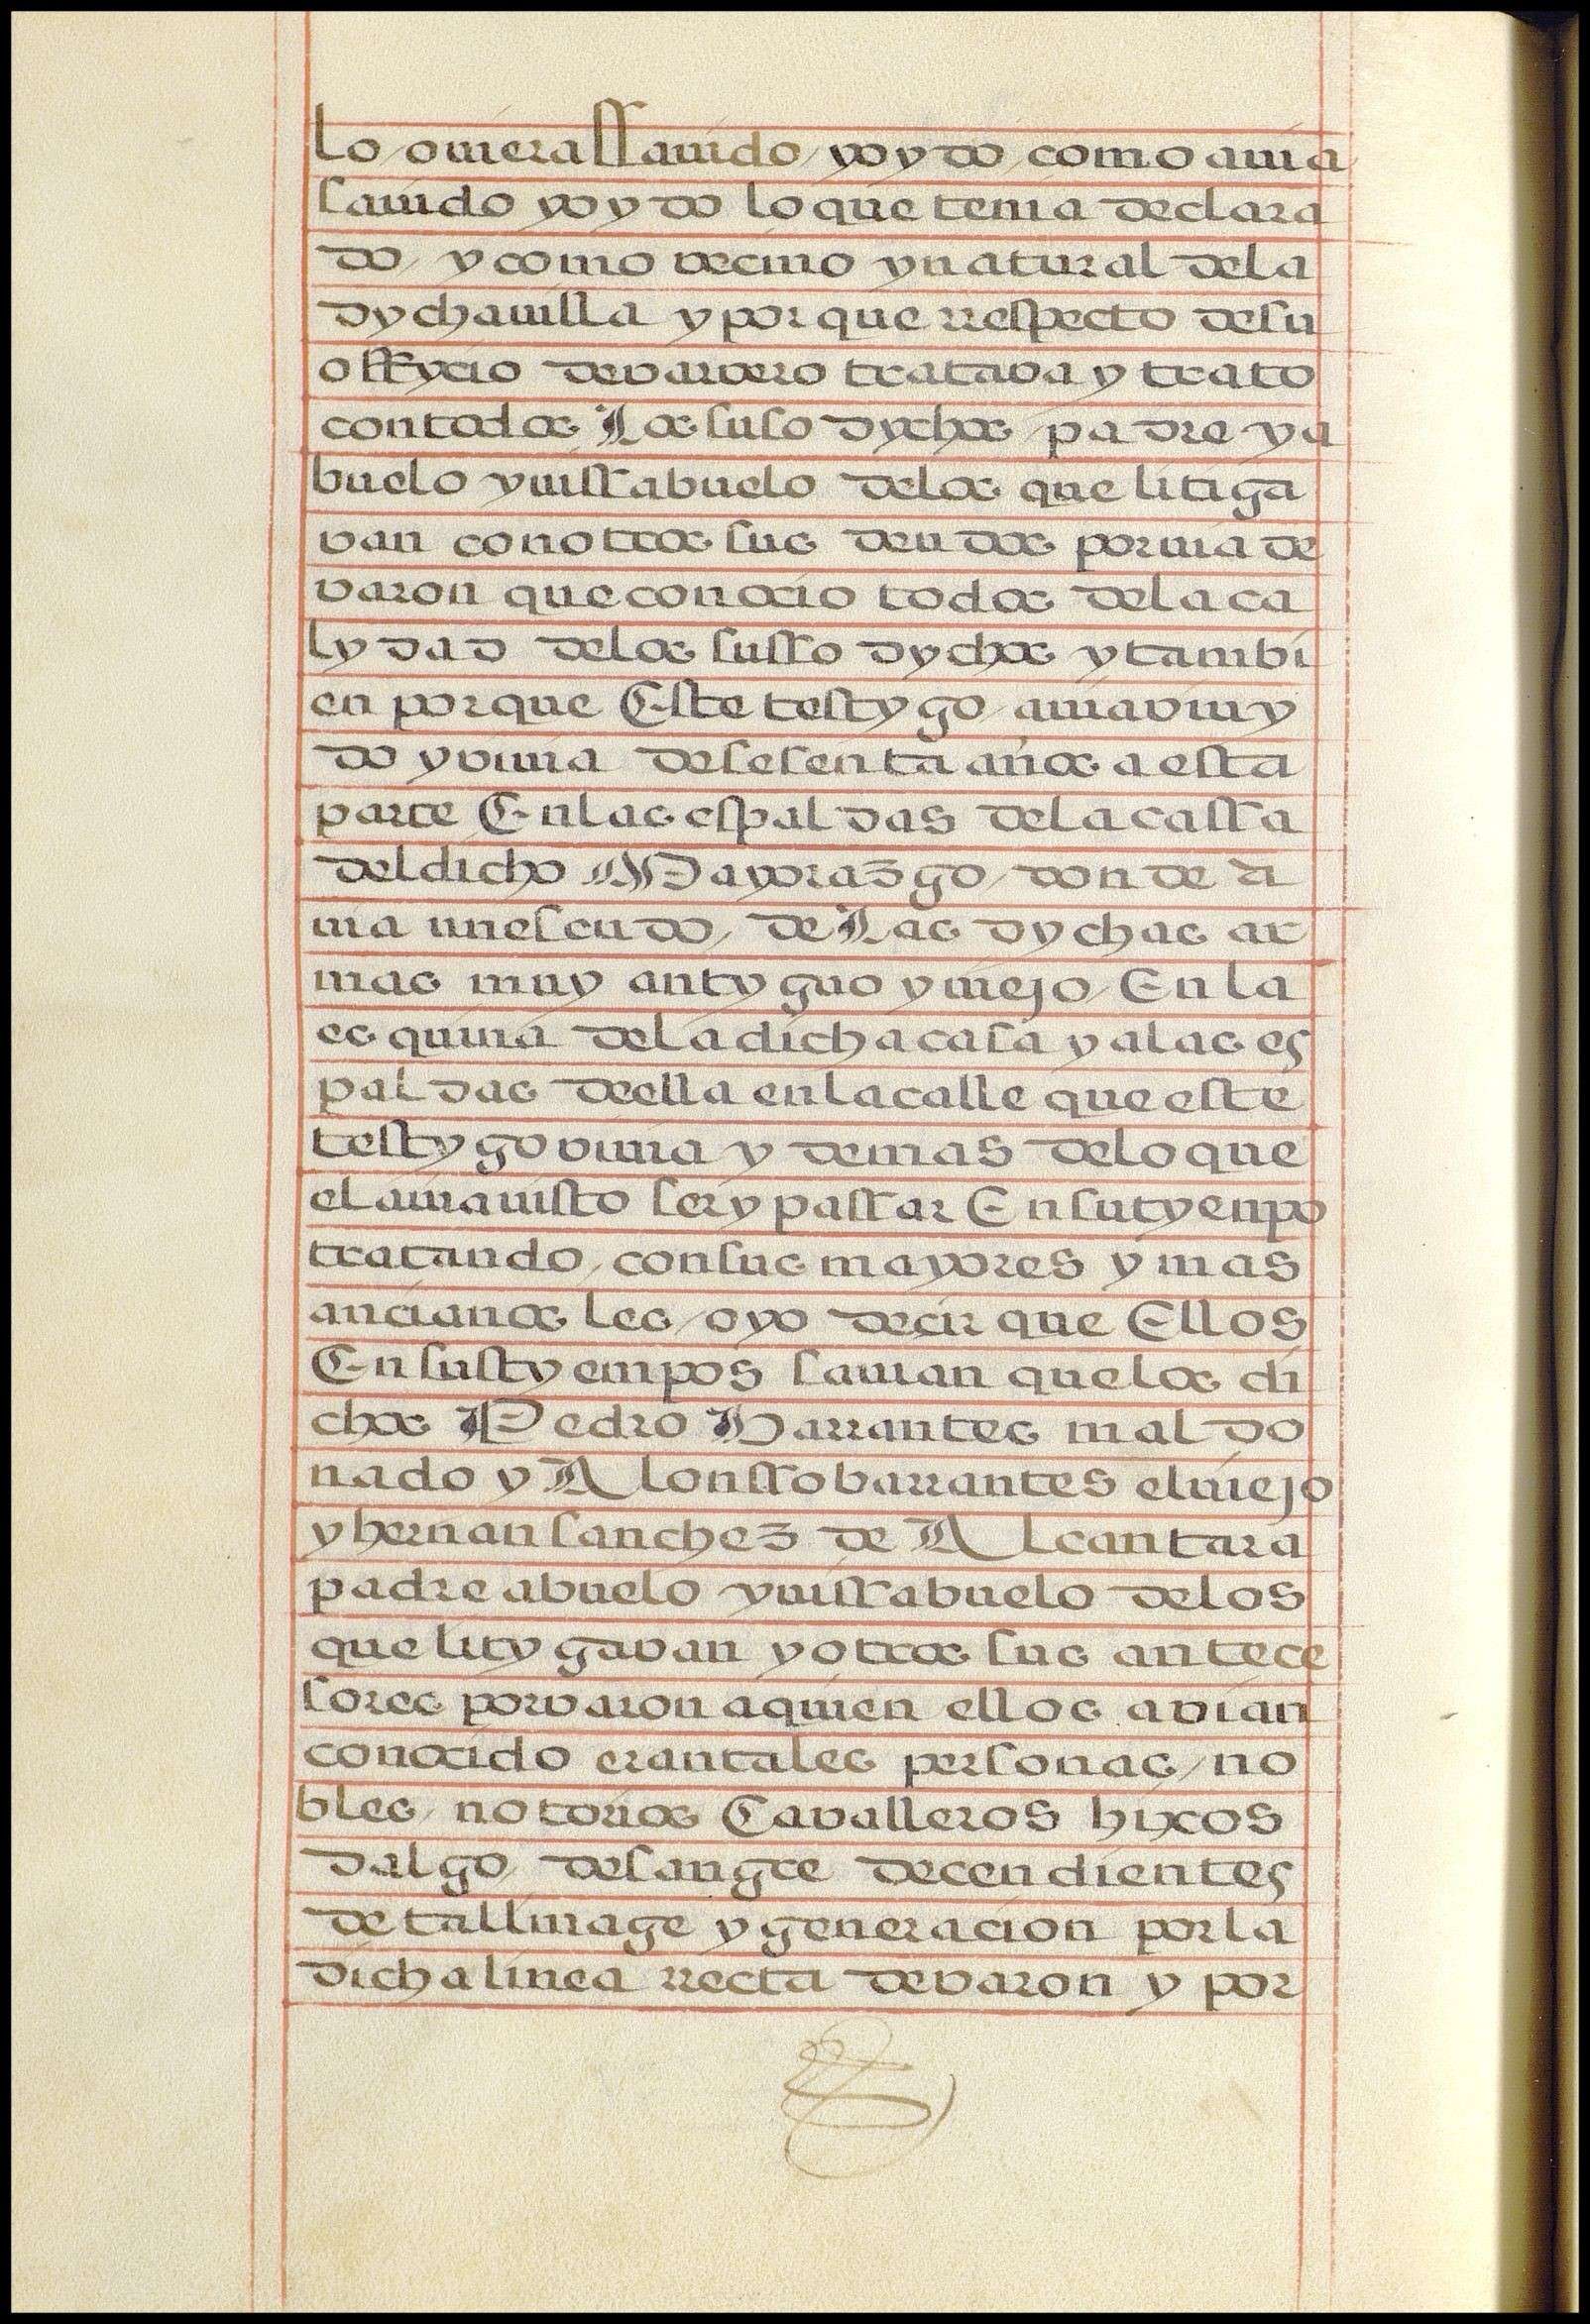 lo / oviera ssavido / yoydo / como avia
savido yoydo lo que tenia declara
do / y como vecino y natural de la
dycha villa y por que rrespecto de su
offycio de varvero tratava y trato
con todos Los suso dychos / padre y a
buelo y vissabuelo de los que litiga
van con otros sus deudos por via de
varon que conocio todos de la ca
lydad de los susso dychos y tambi
en por que Este testygo / avia vivy
do y vivia de sesenta años a esta
parte En las espaldas de la cassa
del dicho Mayorazgo / donde a
via un escudo / de Las dychas ar
mas muy antyguo y viejo / En la
esquina de la dicha casa y a las es
paldas de ella en la calle que este
testygo vivia y demas de lo que
el avia visto ser y passar En su tyenpo
tratando / con sus mayores y mas
ancianos les / oyo decir que Ellos
En sus tyempos savian que los di
chos Pedro Barrantes maldo
nado y Alonsso barrantes el viejo
y hernan sanchez de Alcantara
padre abuelo y vissabuelo de los
que litygavan y otros sus antece
sores por varon a quien ellos avian
conocido eran tales personas / no
bles / notorios Cavalleros hixos
dalgo de sangre decendientes
de tal linage y generacion por la
dicha linea rrecta de varon y por